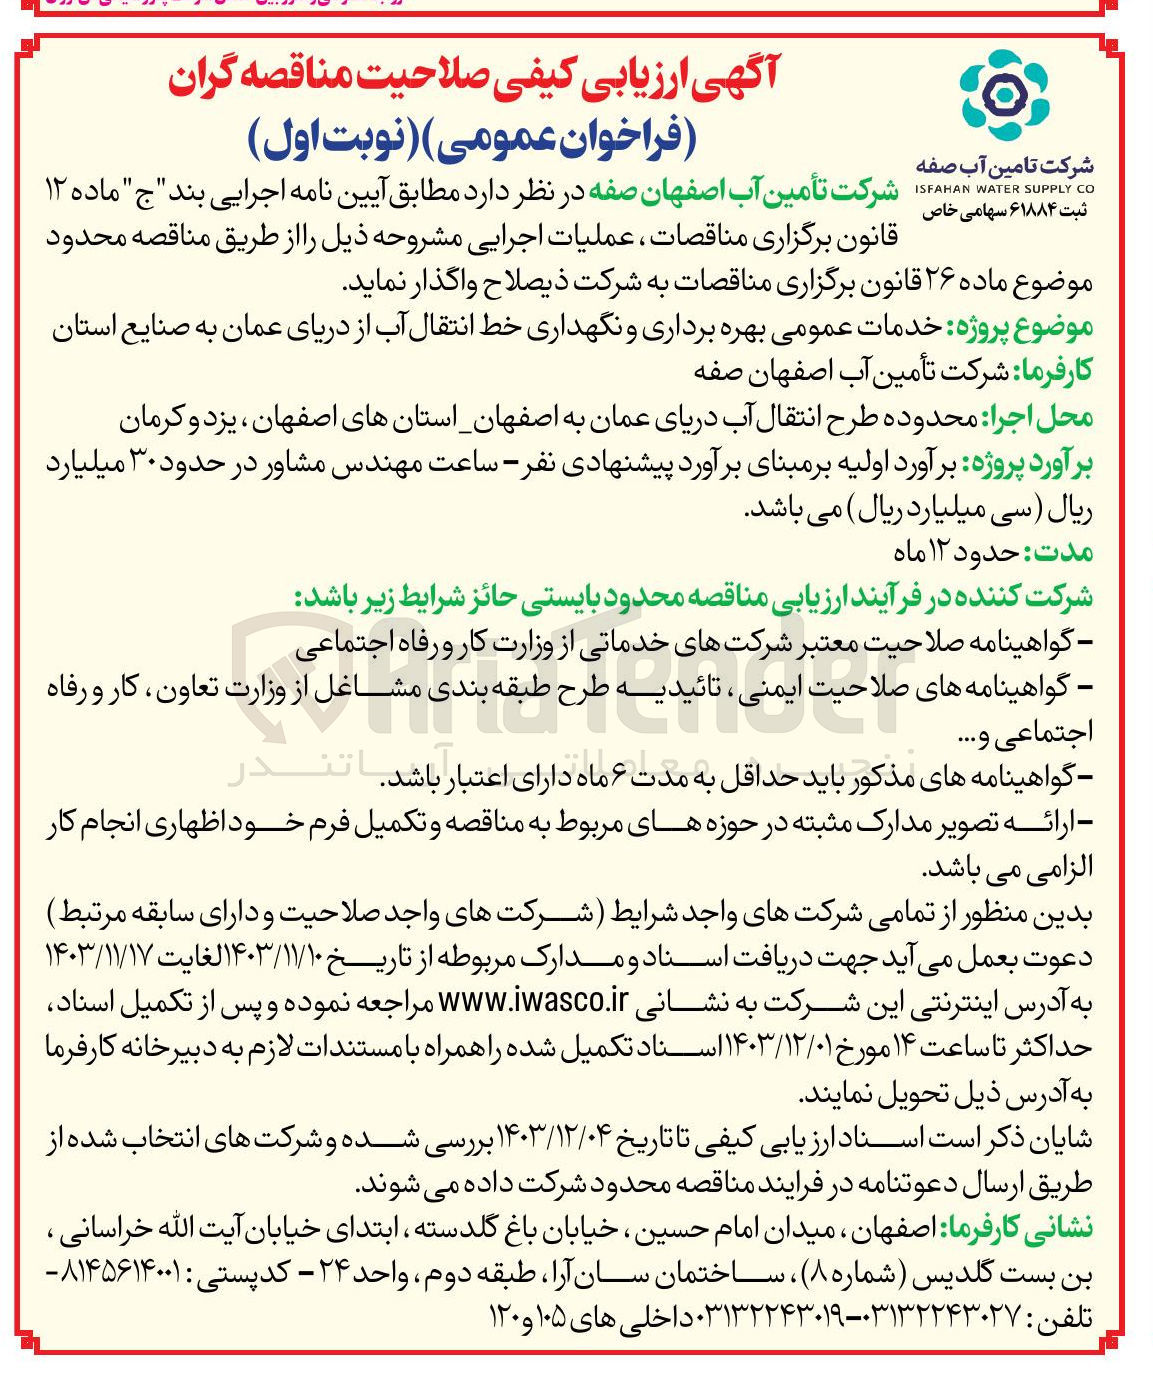 آگهی ارزیابی کیفی صلاحیت مناقصه گران
(فراخوان عمومی)(نوبت اول)
شرکت تامین آب صفه
ISFAHAN WATER SUPPLY CO
ثبت ۶۱۸۸۴ سهامی خاص
شرکت تأمین آب اصفهان صفه در نظر دارد مطابق آیین نامه اجرایی بند "ج" ماده ۱۲
قانون برگزاری مناقصات، عملیات اجرایی مشروحه ذیل را از طریق مناقصه محدود
موضوع ماده ۲۶ قانون برگزاری مناقصات به شرکت ذیصلاح واگذار نماید.
موضوع پروژه: خدمات عمومی بهره برداری و نگهداری خط انتقال آب از دریای عمان به صنایع استان
کارفرما: شرکت تأمین آب اصفهان صفه
محل اجرا: محدوده طرح انتقال آب دریای عمان به اصفهان_ استان های اصفهان، یزد و کرمان
برآورد پروژه: برآورد اولیه برمبنای برآورد پیشنهادی نفر – ساعت مهندس مشاور در حدود ۳۰ میلیارد
ریال (سی میلیارد ریال) می باشد.
مدت: حدود ۱۲ ماه
شرکت کننده در فرآیند ارزیابی مناقصه محدود بایستی حائز شرایط زیر باشد:
– گواهینامه صلاحیت معتبر شرکت های خدماتی از وزارت کار و رفاه اجتماعی
– گواهینامه های صلاحیت ایمنی، تائیدیه طرح طبقه بندی مشاغل از وزارت تعاون، کار و رفاه
اجتماعی و...
– گواهینامه های مذکور باید حداقل به مدت ۶ ماه دارای اعتبار باشد.
– ارائه تصویر مدارک مثبته در حوزه های مربوط به مناقصه و تکمیل فرم خود اظهاری انجام کار
الزامی می باشد.
بدین منظور از تمامی شرکت های واجد شرایط (شرکت های واجد صلاحیت و دارای سابقه مرتبط)
دعوت بعمل می آید جهت دریافت اسناد و مدارک مربوطه از تاریخ ۱۴۰۳/۱۱/۱۰ لغایت ۱۴۰۳/۱۱/۱۷
به آدرس اینترنتی این شرکت به نشانی www.iwasco.ir مراجعه نموده و پس از تکمیل اسناد،
حداکثر تا ساعت ۱۴ مورخ ۱۴۰۳/۱۲/۰۱ اسناد تکمیل شده را همراه با مستندات لازم به دبیرخانه کارفرما
به آدرس ذیل تحویل نمایند.
شایان ذکر است اسناد ارزیابی کیفی تا تاریخ ۱۴۰۳/۱۲/۰۴ بررسی شده و شرکت های انتخاب شده از
طریق ارسال دعوتنامه در فرایند مناقصه محدود شرکت داده می شوند.
نشانی کارفرما: اصفهان، میدان امام حسین، خیابان باغ گلدسته، ابتدای خیابان آیت الله خراسانی،
بن بست گلدیس (شماره ۸)، ساختمان سان آرا، طبقه دوم، واحد ۲۴ – کدپستی: ۸۱۴۵۶۱۴۰۰۱ -
تلفن: ۰۳۱۳۲۲۴۳۰۲۷–۰۳۱۳۲۲۴۳۰۱۹ داخلی های ۱۰۵ و ۱۲۰
AriaTender